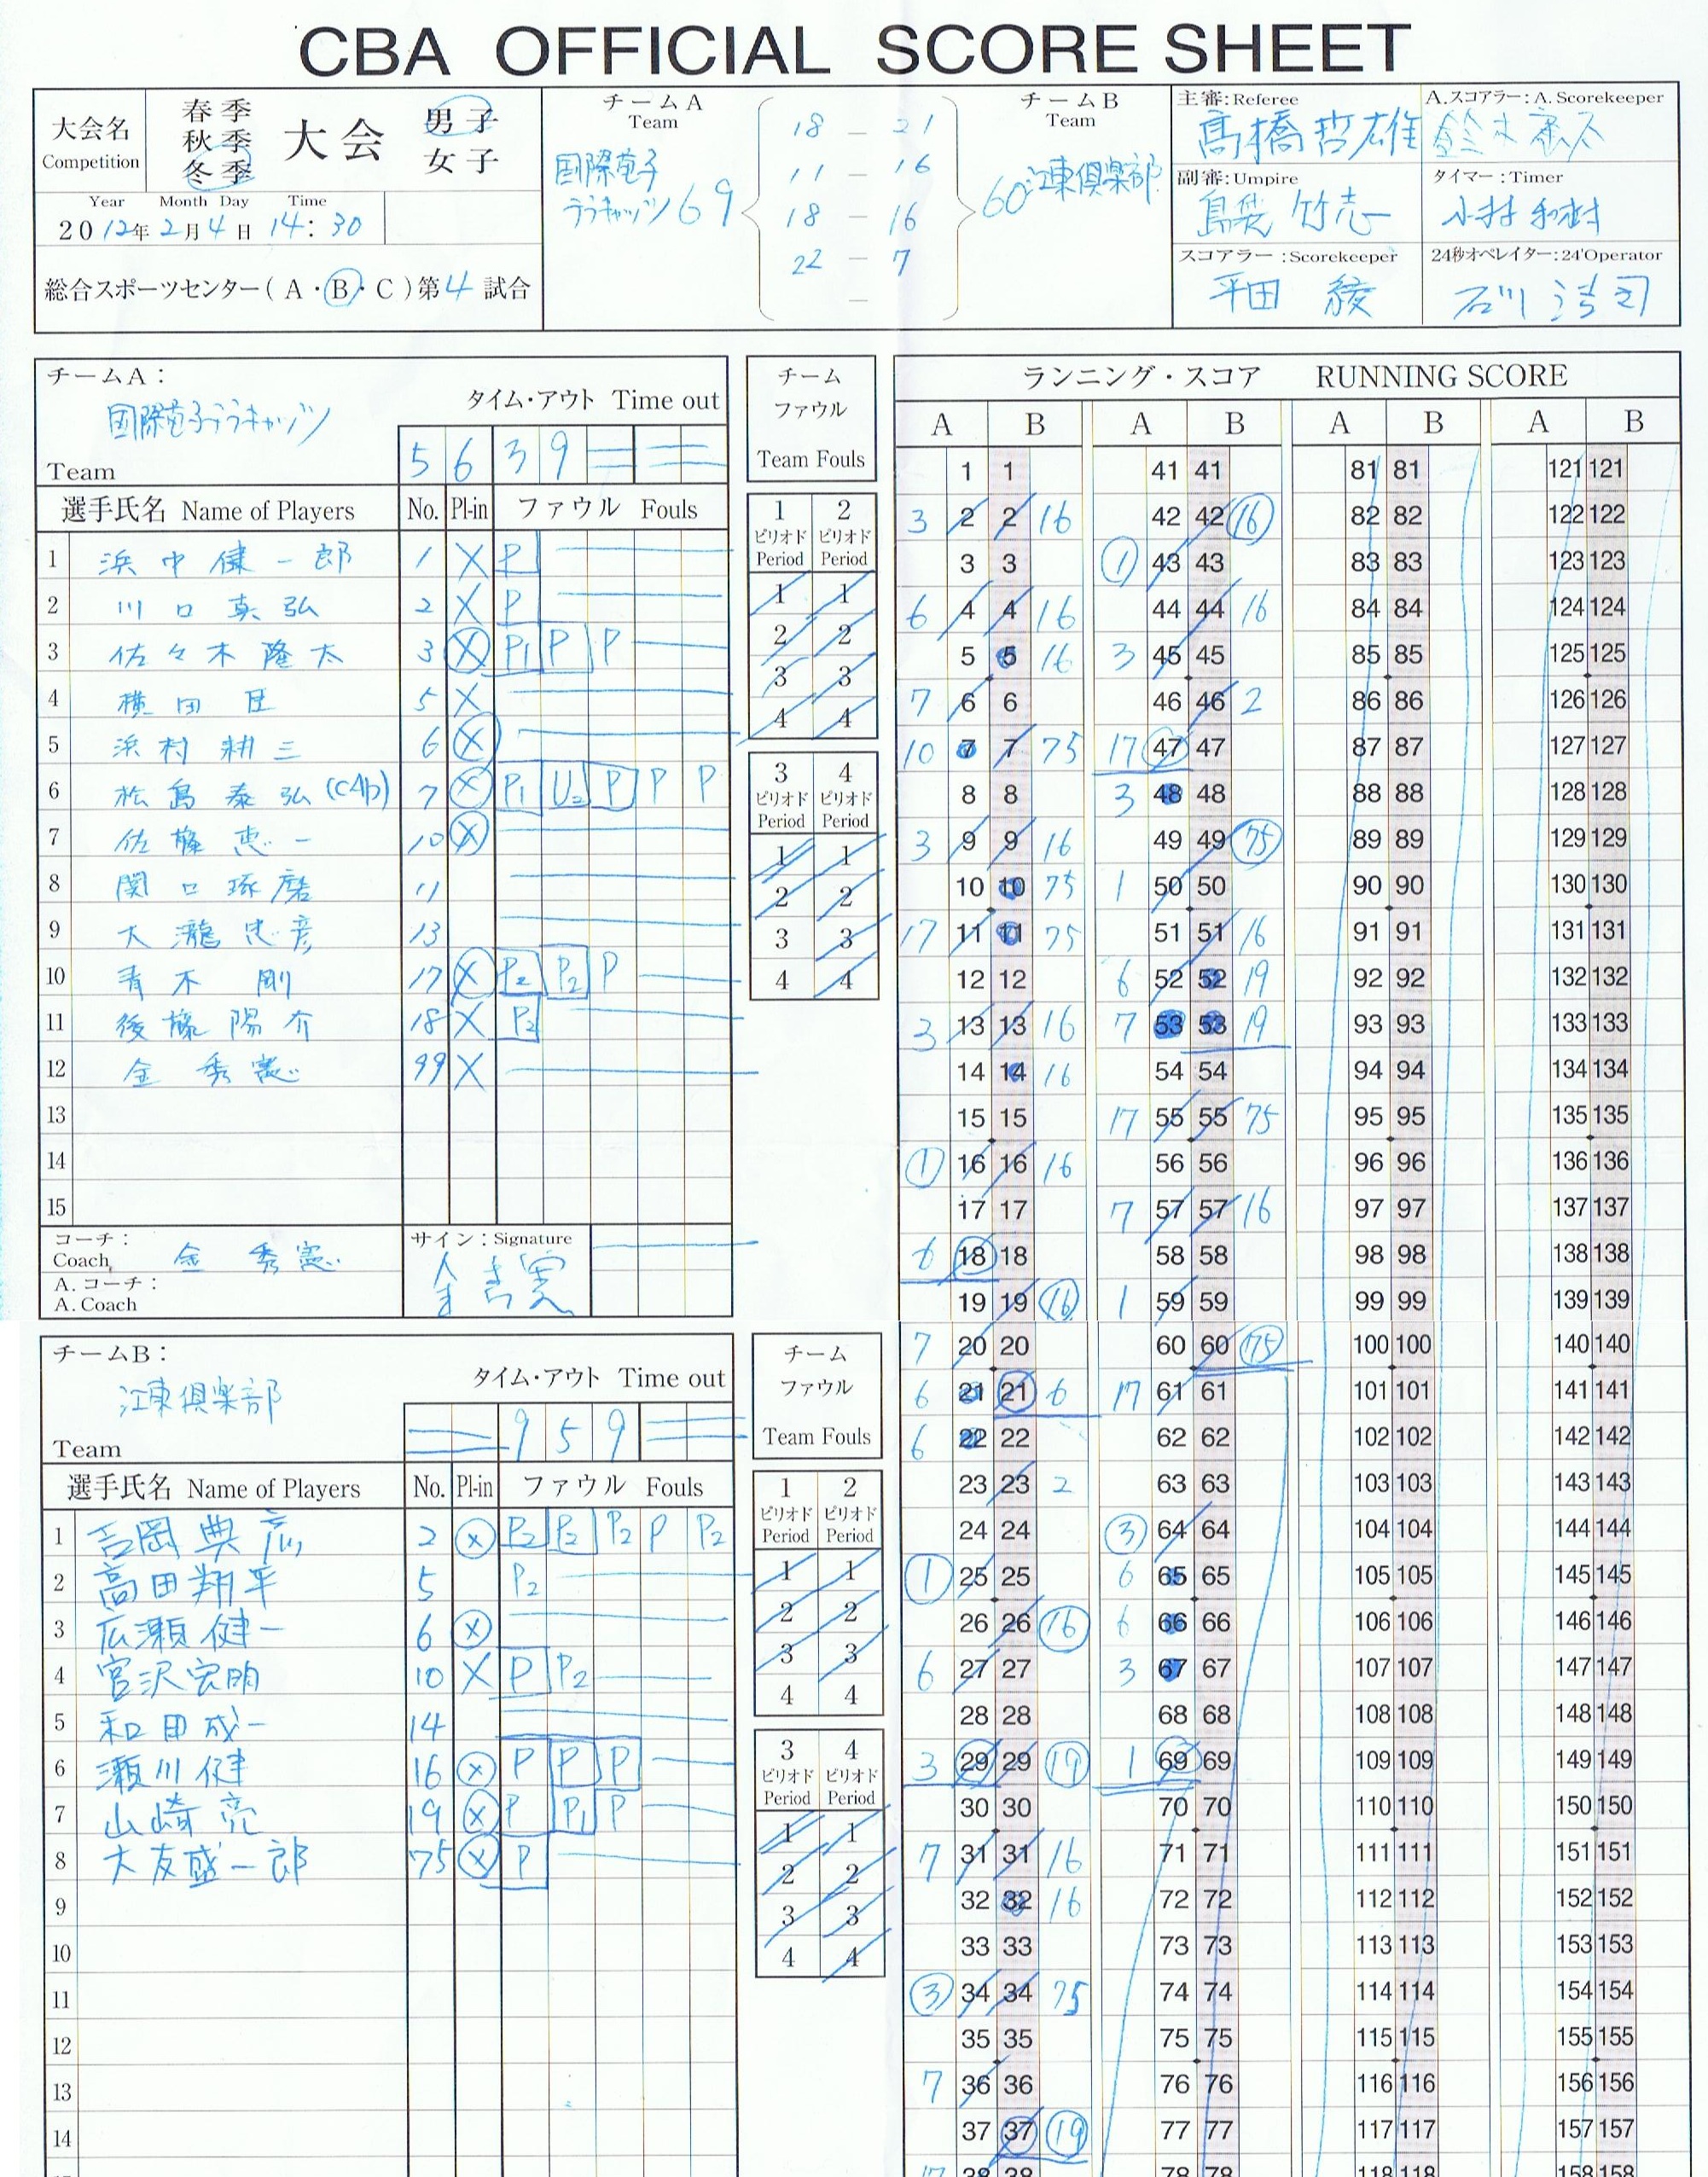 CBA OFFICIAL SCORE SHEET
大会名
Competition
春季
秋季
冬季
大会
男子
女子
Year Month Day Time
2012年 2月4日 14:30
総合スポーツセンター(A・B・C)第4試合
チームA
Team
国際電子
ララキャッツ 69
18 — 21
11 — 16
18 — 16
22 — 7
—
チームB
Team
60 江東倶楽部
主審:Referee
髙橋哲雄
A.スコアラー:A. Scorekeeper
鈴木
副審:Umpire
島袋 竹志
タイマー:Timer
小林和樹
スコアラー:Scorekeeper
平田 綾
24秒オペレイター:24'Operator
石川 浩司
チームA:
国際電子ララキャッツ
Team
タイム・アウト Time out
5 6 3 9
選手氏名 Name of Players No. Pl-in ファウル Fouls
1 浜中健一郎 1 X P
2 川口真弘 2 X P
3 佐々木隆太 3 X P1 P P
4 横田 匡 5 X
5 浜村耕三 6 X
6 松島泰弘(cap) 7 X P1 U2 P P P
7 佐藤恵一 10 X
8 関口琢磨 11
9 大瀧忠彦 13
10 青木 剛 17 X P2 P2 P
11 後藤陽介 18 X P2
12 金 秀憲 99 X
13
14
15
コーチ:
Coach 金 秀憲
A.コーチ:
A. Coach
サイン:Signature
チーム
ファウル
Team Fouls
1 2
ピリオド ピリオド
Period Period
1 1
2 2
3 3
4 4
3 4
ピリオド ピリオド
Period Period
1 1
2 2
3 3
4 4
チームB:
江東倶楽部
Team
タイム・アウト Time out
9 5 9
選手氏名 Name of Players No. Pl-in ファウル Fouls
1 吉岡典彦 2 X P2 P2 P2 P P2
2 高田翔平 5 P2
3 広瀬健一 6 X
4 宮沢宏明 10 X P P2
5 和田成一 14
6 瀬川健 16 X P P P
7 山崎亮 19 X P P1 P
8 大友盛一郎 75 X P
9
10
11
12
13
14
チーム
ファウル
Team Fouls
1 2
ピリオド ピリオド
Period Period
1 1
2 2
3 3
4 4
3 4
ピリオド ピリオド
Period Period
1 1
2 2
3 3
4 4
ランニング・スコア RUNNING SCORE
A B A B A B A B
1 1 41 41 81 81 121 121
3 2 2 16 42 42 16 82 82 122 122
3 3 1 43 43 83 83 123 123
6 4 4 16 44 44 16 84 84 124 124
5 5 16 3 45 45 85 85 125 125
7 6 6 46 46 2 86 86 126 126
10 7 7 75 17 47 47 87 87 127 127
8 8 3 48 48 88 88 128 128
3 9 9 16 49 49 75 89 89 129 129
10 10 75 1 50 50 90 90 130 130
17 11 11 75 51 51 16 91 91 131 131
12 12 6 52 52 19 92 92 132 132
3 13 13 16 7 53 53 19 93 93 133 133
14 14 16 54 54 94 94 134 134
15 15 17 55 55 75 95 95 135 135
1 16 16 16 56 56 96 96 136 136
17 17 7 57 57 16 97 97 137 137
6 18 18 58 58 98 98 138 138
19 19 16 1 59 59 99 99 139 139
7 20 20 60 60 75 100 100 140 140
6 21 21 6 17 61 61 101 101 141 141
6 22 22 62 62 102 102 142 142
23 23 2 63 63 103 103 143 143
24 24 3 64 64 104 104 144 144
1 25 25 6 65 65 105 105 145 145
26 26 16 6 66 66 106 106 146 146
6 27 27 3 67 67 107 107 147 147
28 28 68 68 108 108 148 148
3 29 29 19 1 69 69 109 109 149 149
30 30 70 70 110 110 150 150
7 31 31 16 71 71 111 111 151 151
32 32 16 72 72 112 112 152 152
33 33 73 73 113 113 153 153
3 34 34 75 74 74 114 114 154 154
35 35 75 75 115 115 155 155
7 36 36 76 76 116 116 156 156
37 37 19 77 77 117 117 157 157
17 38 38 78 78 118 118 158 158